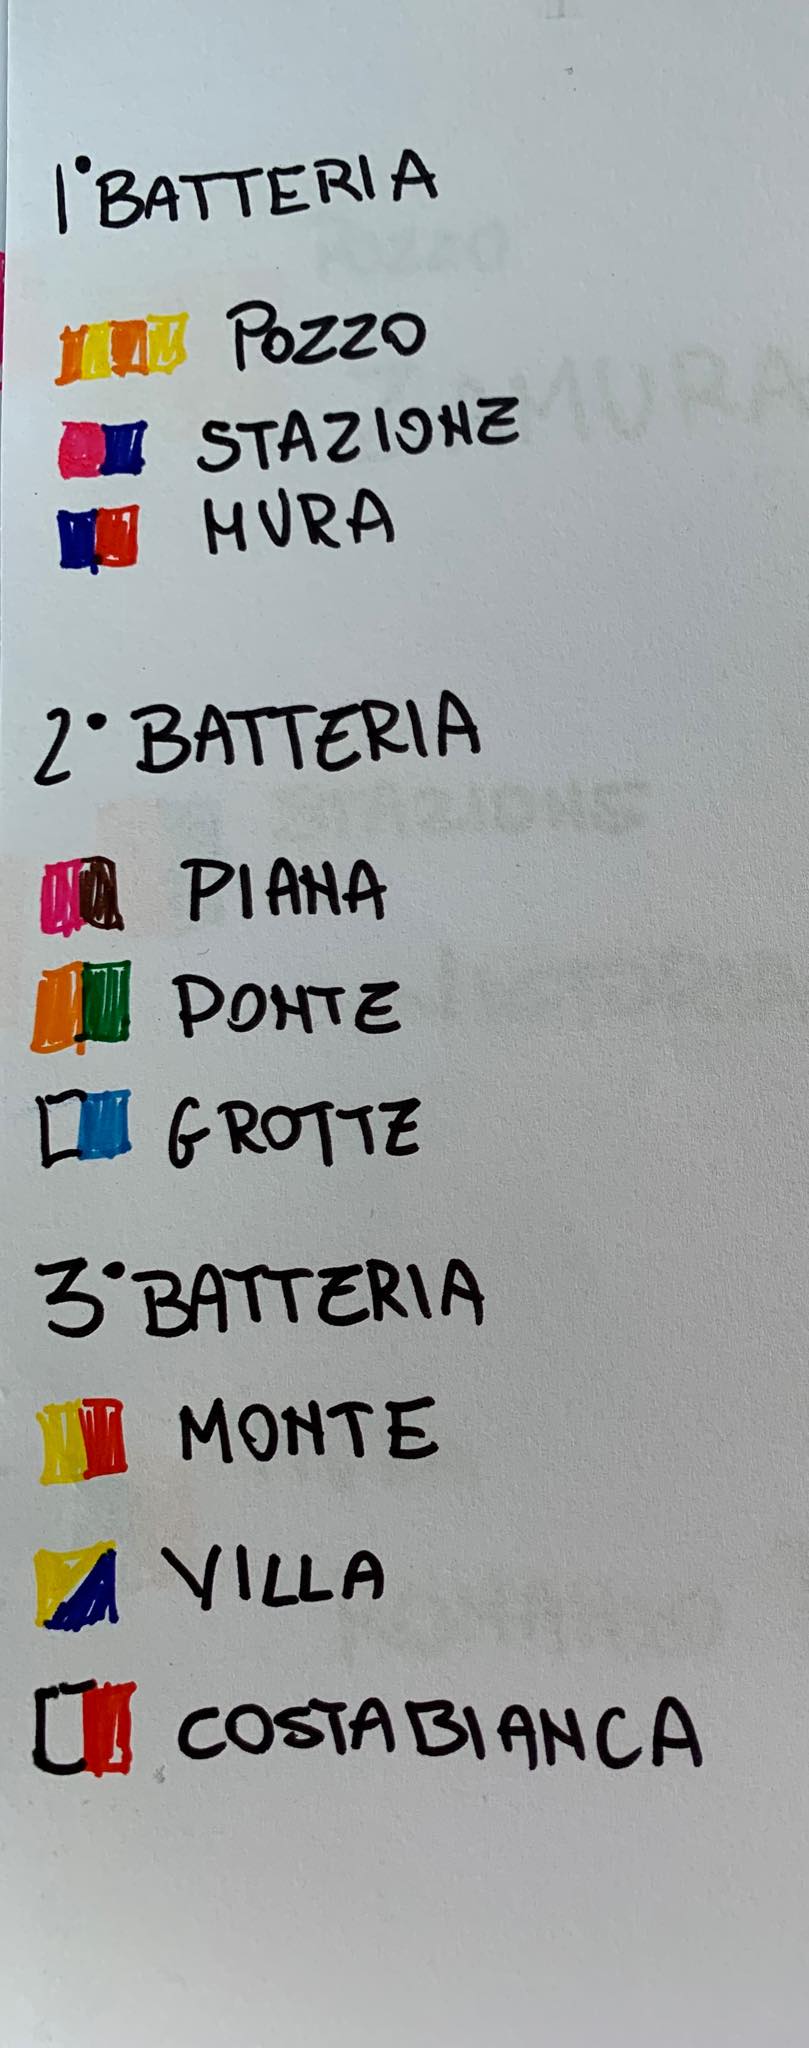 1° BATTERIA
POZZO
STAZIONE
MURA
2° BATTERIA
PIANA
PONTE
GROTTE
3° BATTERIA
MONTE
VILLA
COSTABIANCA